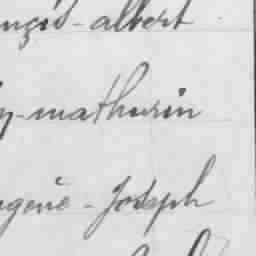 ançis-albert
y-mathurin
ugène-Joseph